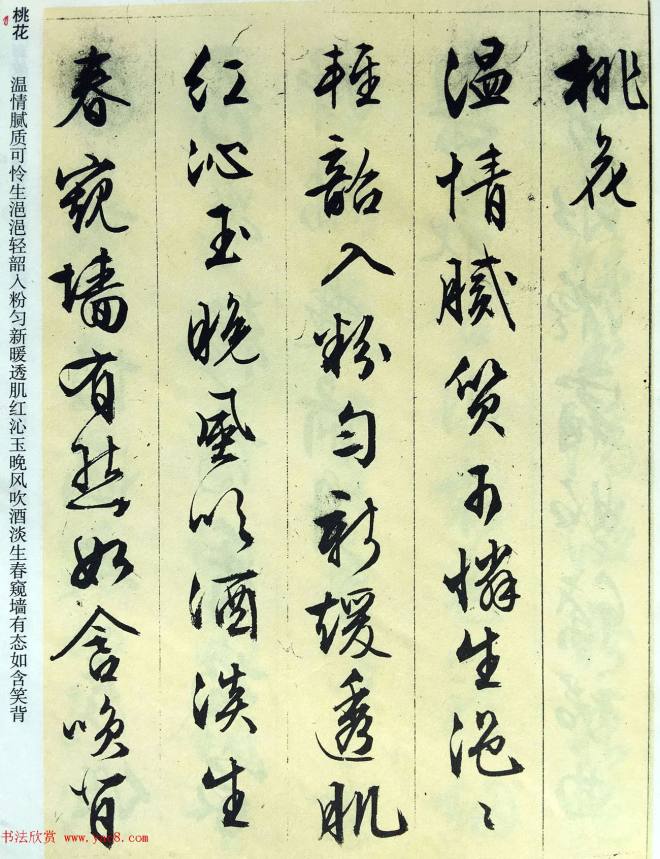 桃花
温情腻质可怜生浥浥
轻韶入粉匀新暖透肌
红沁玉晚风吹酒淡生
春窥墙有态如含笑背
桃花
温情腻质可怜生浥浥轻韶入粉匀新暖透肌红沁玉晚风吹酒淡生春窥墙有态如含笑背
书法欣赏 www.yac8.com